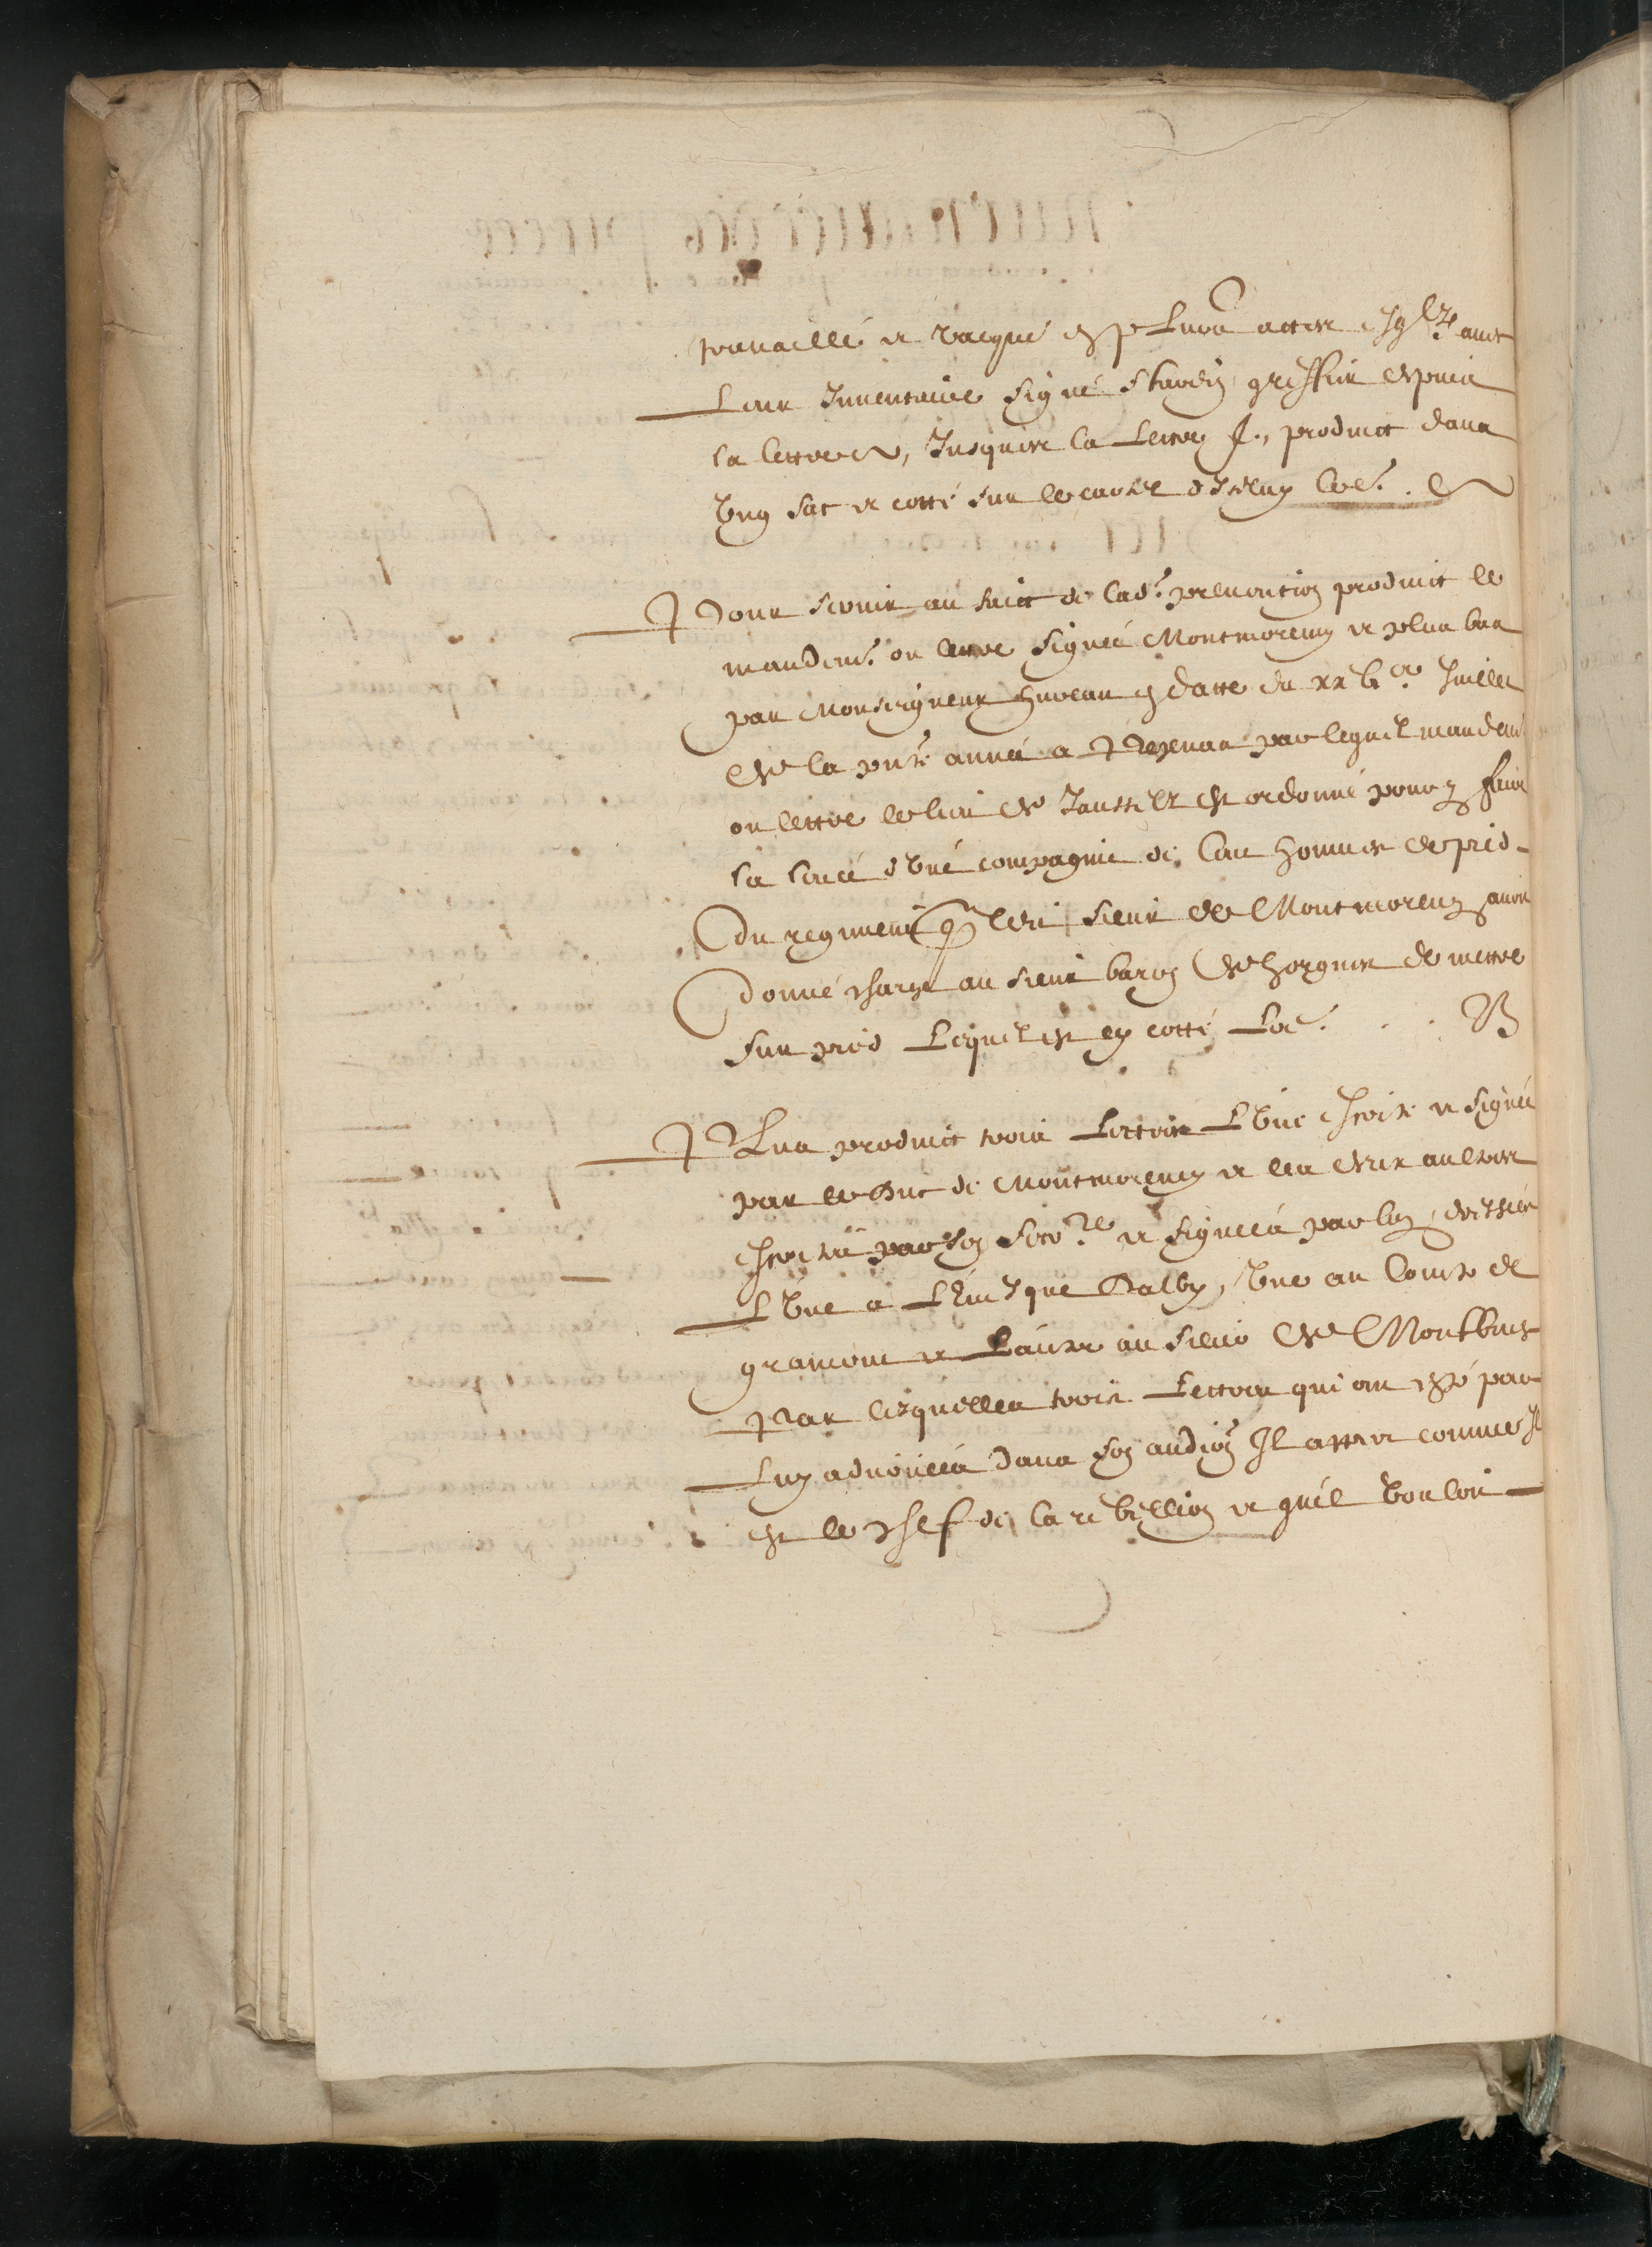 travaillé et vacqué et pluro actes
Leur Inventaire signé greffier depuis
la lettre A, Jusques la Lettre f., produict dans
Ung sac et cotté sur le caoier d'Iceluy Loe. A
Pour servir au faict de lad.e prevention produict le
mandem.t ou lettre signée Montmorency et plus bas
par Monseigneur en datte du xxbe Juillet
de la pnte année a Pezenas par lequel mandem.t
ou lettre le sieur de est ordonné pour faire
la levée d'Une compagnie de Cent hommes de pied
du regiment q ledit sieur de Montmorency avoit
donné charge au sieur baron de de mettre
sur pied Lequel est cy cotté Loe. . . B
Plus produict trois Lettres L'Une escripte et signée
par le Duc de Montmorency et les deux aultres
escriptes par son secre.re et signées par luy, dressées
L'Une a L'Evesque Dalby, Une au Comte de
gramont et Lautre au sieur de Montbrun
Par lesquelles trois Lettres qui ont esté par
Luy advouées dans son audion Il appert comme Il
est le chef de la rebellion et qu'il Vouloit